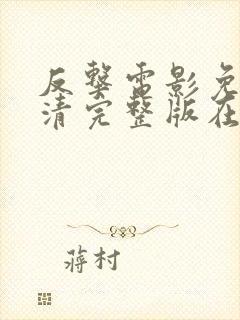 反撃电影免
清完整版在
蒋村